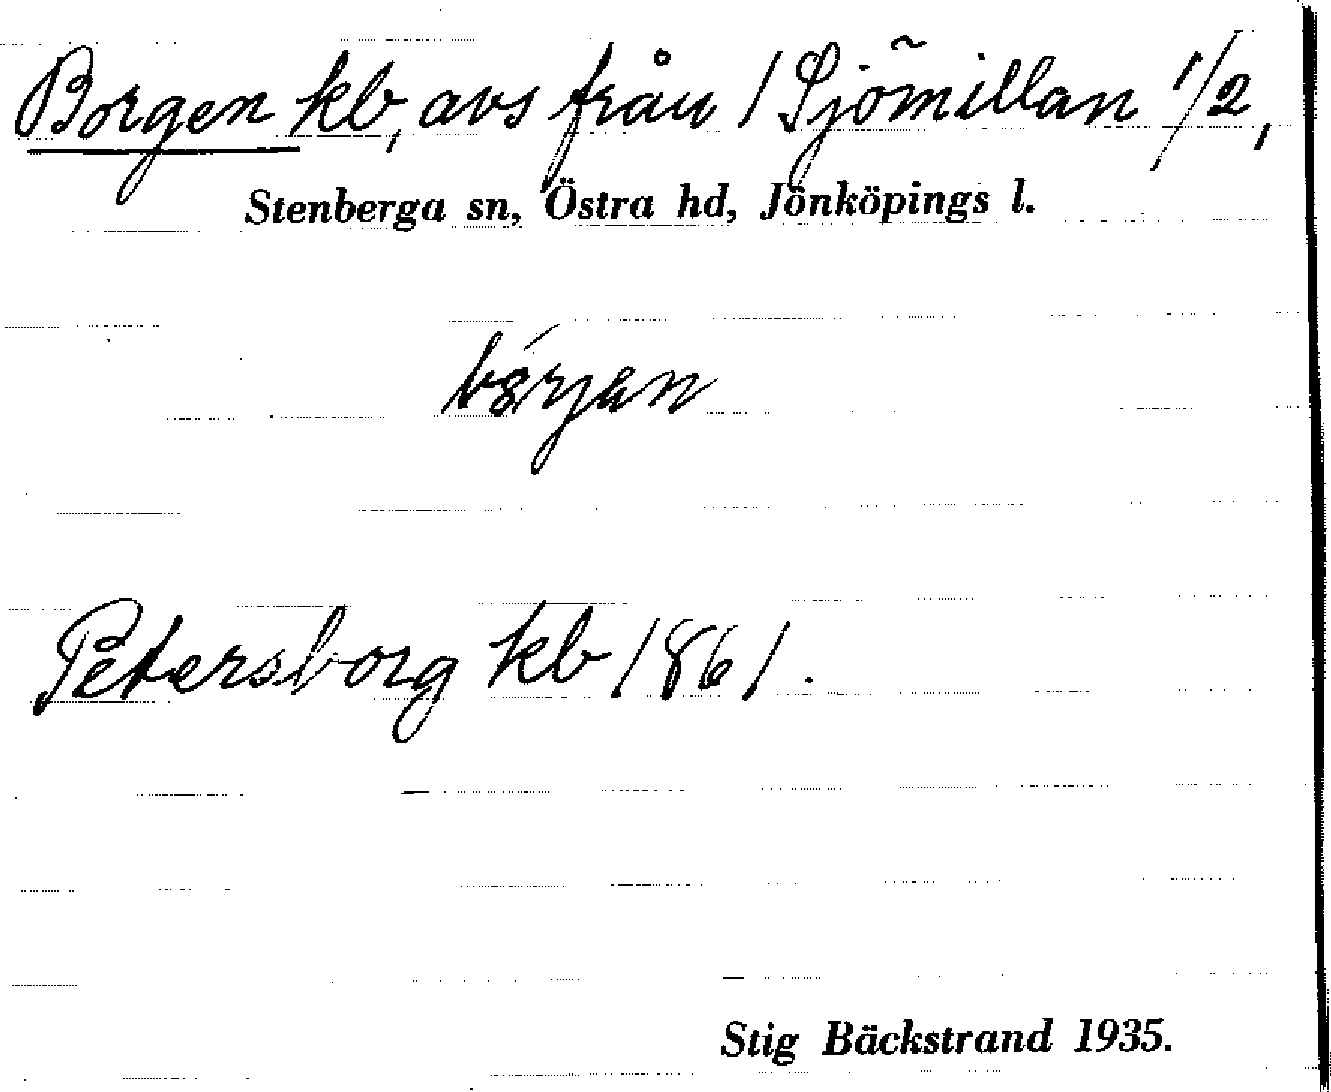 Borgen kb, avs från 1 Sjömillan 1/2,
Stenberga sn, Östra hd, Jönköpings l.
Petersborg kb 1861.
Stig Bäckstrand 1935.